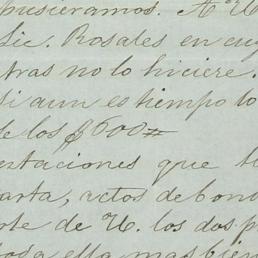 pusiéramos. A U
Lic. Rosales en cuy
tras no lo hiciere.
si aun es tiempo lo
de los $600=
estaciones que
arta, actos de bond
te de U. los dos p
toda ella mas bien